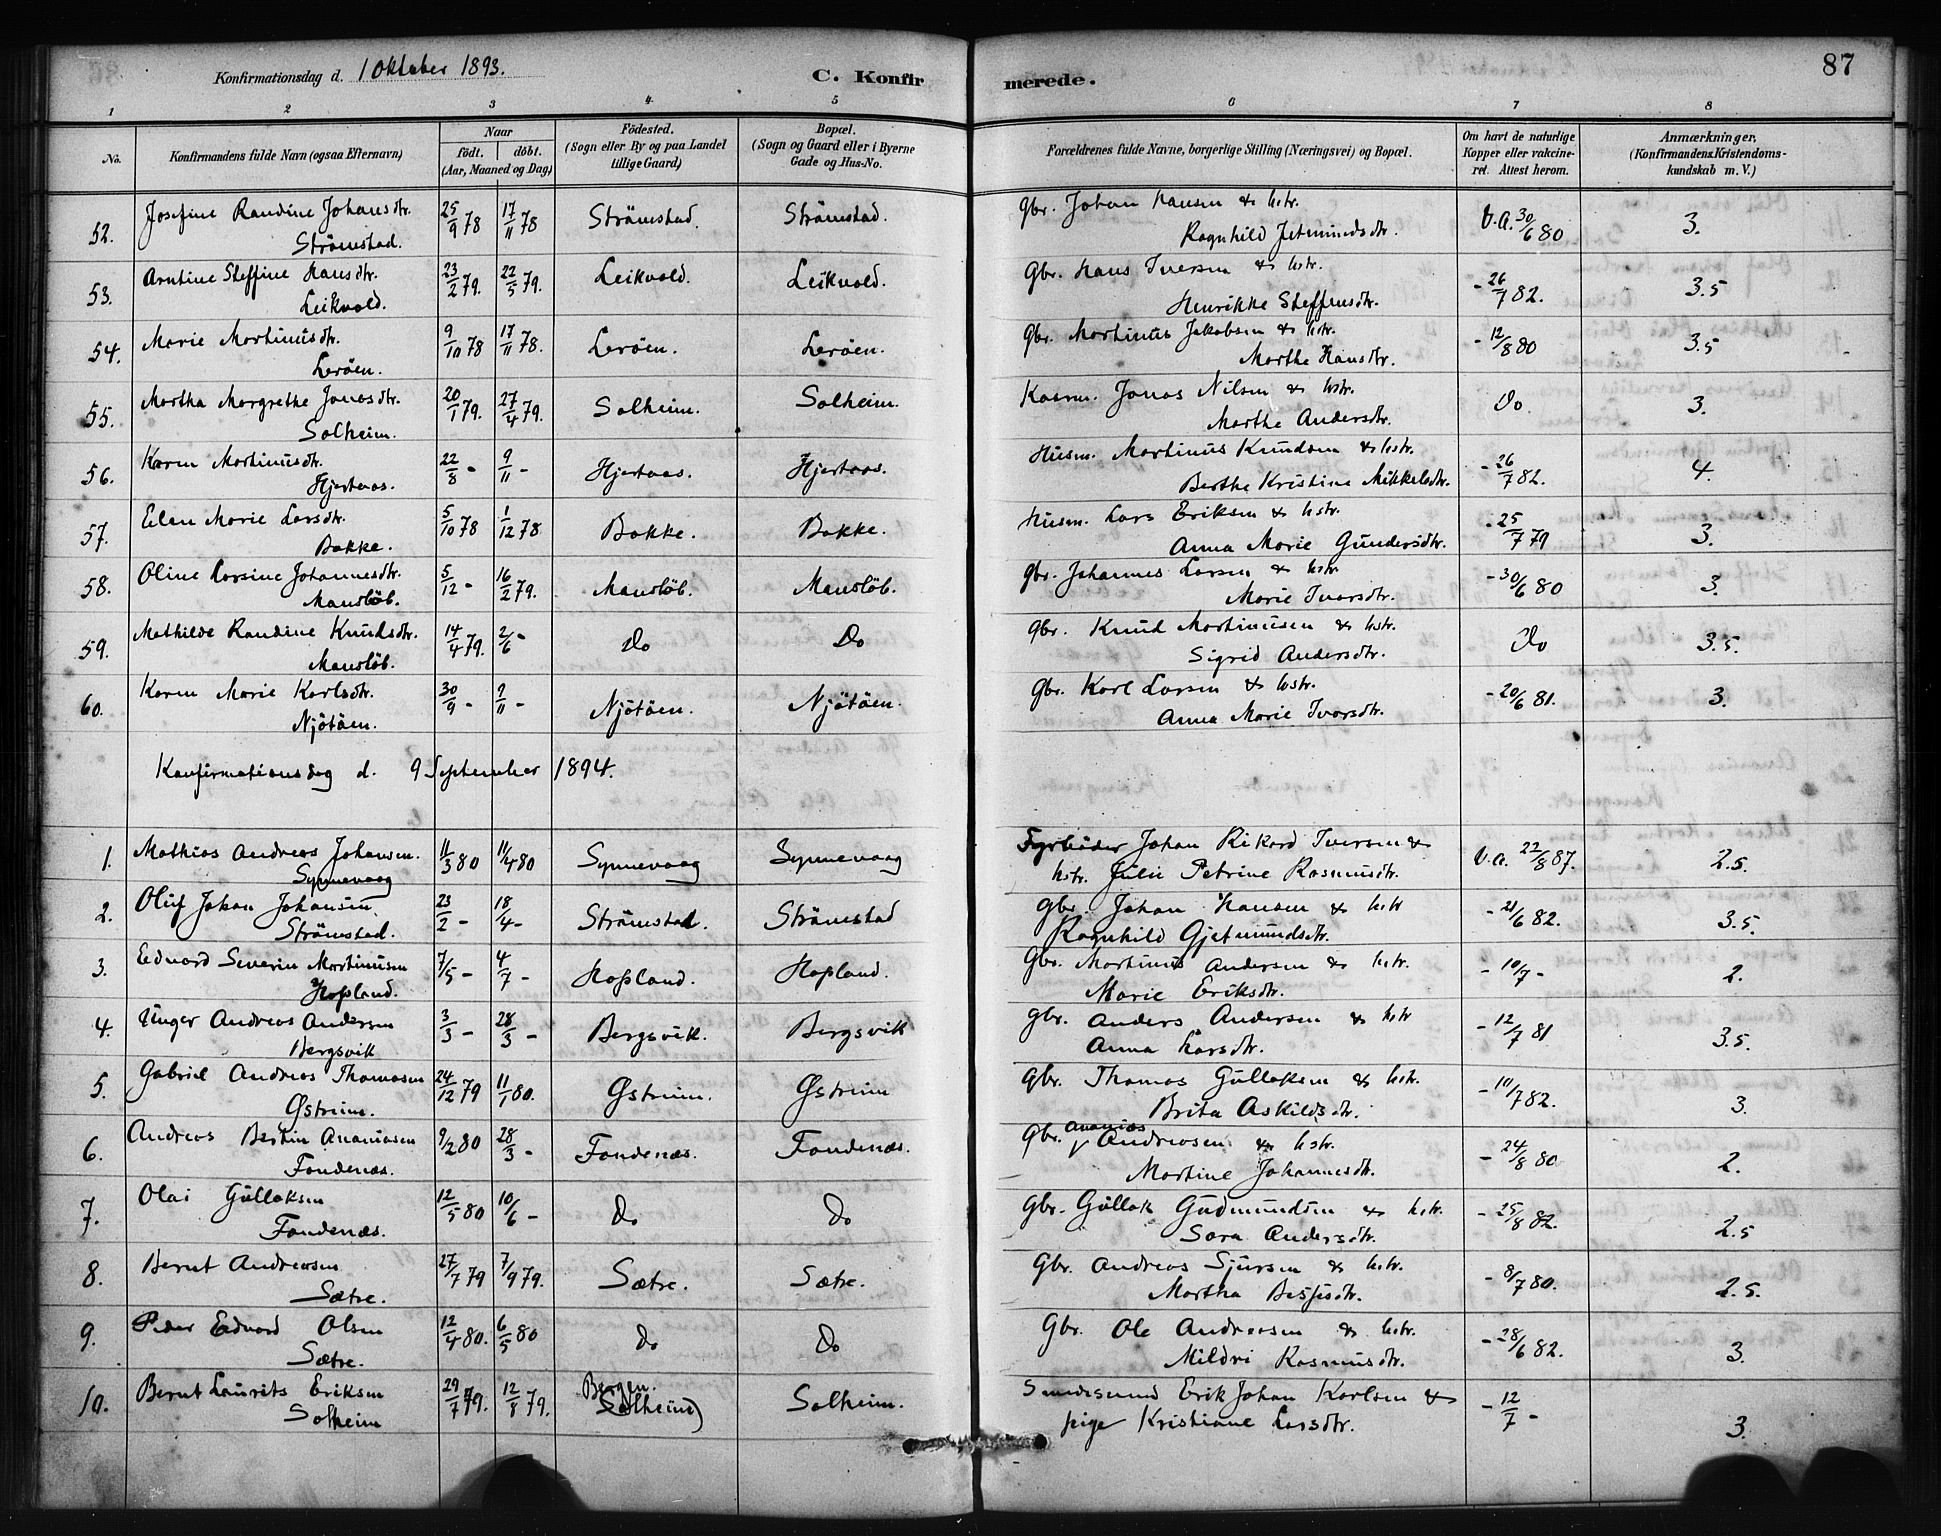 Konfirmationsdag d. 1 Oktober 1893. C. Konfirmerede. 87
1 2 3 4. 5 6 7 8
No. Konfirmandens fulde Navn (ogsaa Efternavn) Naar födt. döbt. (Aar, Maaned og Dag) Födested. (Sogn eller By og paa Landet tillige Gaard) Bopæl. (Sogn og Gaard eller i Byerne Gade og Hus-No. Forældrenes fulde Navne, borgerlige Stilling (Næringsvei) og Bopæl. Om havt de naturlige Kopper eller vakcineret. Attest herom. Anmærkninger, (Konfirmandens Kristendomskundskab m. V.)
52. Josefine Randine Johansdtr. 25/9 78 17/11 78 Strömstad. Strömstad. Gbr. Johan Hansen & hstr. V.A. 30/6 80 3.
Strömstad. Ragnhild Jetmundsdtr.
53. Arntine Steffine Hansdtr. 23/2 79. 22/5 79. Leikvold. Leikvold. Gbr. Hans Iversen & hstr. - 26/7 82. 3.5
Leikvold. Henrikke Steffensdtr.
54. Marie Martinusdtr. 9/10 78 17/11 78. Leröen. Leröen. Gbr. Martinus Jakobsen & hstr. - 12/8 80 3.5
Leröen. Marthe Hansdtr.
55. Martha Margrethe Jonasdtr. 20/1 79. 27/4 79. Solheim. Solheim. Kaarm. Jonas Nilsen & hstr. Do. 3.
Solheim. Marthe Andersdtr.
56. Karen Martinusdtr. 22/8 - 9/11 - Hjertaas. Hjertaas. Husm. Martinus Knudsen & hstr. - 26/7 82. 4.
Hjertaas. Berthe Kristine Mikkelsdtr.
57. Elen Marie Larsdtr. 5/10 78 1/12 78. Bakke. Bakke. Husm. Lars Eriksen & hstr. - 25/7 79 3.
Bakke. Anna Marie Gundersdtr.
58. Oline Larsine Johannesdtr. 5/12 - 16/2 79. Mauslöb. Mauslöb. Gbr. Johannes Larsen & hstr. - 30/6 80 3.
Mauslöb. Marie Ivarsdtr.
59. Mathilde Randine Knudsdtr. 14/4 79. 2/6 - Do Do Gbr. Knud Martinusen & hstr. Do 3.5.
Mauslöb. Sigrid Andersdtr.
60. Karen Marie Karlsdtr. 30/9 - 9/11 - Njötöen. Njötöen. Gbr. Karl Larsen & hstr. - 20/6 81. 3.
Njötöen. Anna Marie Ivarsdtr.
Konfirmationsdag d. 9 September 1894.
1. Mathias Andreas Johansen. 11/3 80 11/4 80 Synnevaag Synnevaag Fyrböder Johan Rikard Iversen & V.A. 22/8 87. 2.5.
Synnevaag hstr. Julie Petrine Rasmusdtr.
2. Oluf Johan Johansen. 23/2 - 18/4 - Strömstad. Strömstad Gbr. Johan Hansen & hstr - 21/6 82. 3.5.
Strömstad. Ragnhild Gjetmundsdtr.
3. Edvard Severin Martinusen 7/5 - 4/7 - Hopland. Hopland. Gbr. Martinus Andersen & hstr. - 10/7 - 2.
Hopland. Marie Eriksdtr.
4. Unger Andreas Andersen 3/3 - 28/3 - Bergsvik. Bergsvik Gbr. Anders Andersen & hstr - 12/7 81 3.5.
Bergsvik Anna Larsdtr.
5. Gabriel Andreas Thomasen 24/12 79 11/1 80. Østreim. Østreim Gbr. Thomas Gullaksen & hstr. - 10/7 82. 3.
Østreim. Brita Askildsdtr.
6. Andreas Bertin Ananiasen 9/2 80 28/3 - Fondenæs. Fondenæs. Gbr. Ananias Andreasen & hstr. - 24/8 80 2.
Fondenæs. Martine Johannesdtr.
7. Olai Gullaksen 12/5 80 10/6 - Do Do Gbr. Gullak Gudmundsen & hstr. - 25/8 82. 2.5
Fondenæs. Sara Andersdtr.
8. Bernt Andreasen 27/7 79 7/9 79. Sætre. Sætre. Gbr. Andreas Sjursen & hstr. - 8/7 80. 2.5.
Sætre. Martha Bispsdtr.
9. Peder Edvard Olsen 12/4 80. 6/5 80 Do Do Gbr. Ole Andreasen & hstr. - 28/6 82. 3.
Sætre. Mildri Rasmusdtr.
10. Bernt Laurits Eriksen 29/7 79. 12/8 79. Bergen. Solheim) Solheim. Erik Johan Karlsen & - 12/7 - 3.
Solheim pige Kristiane Larsdtr.